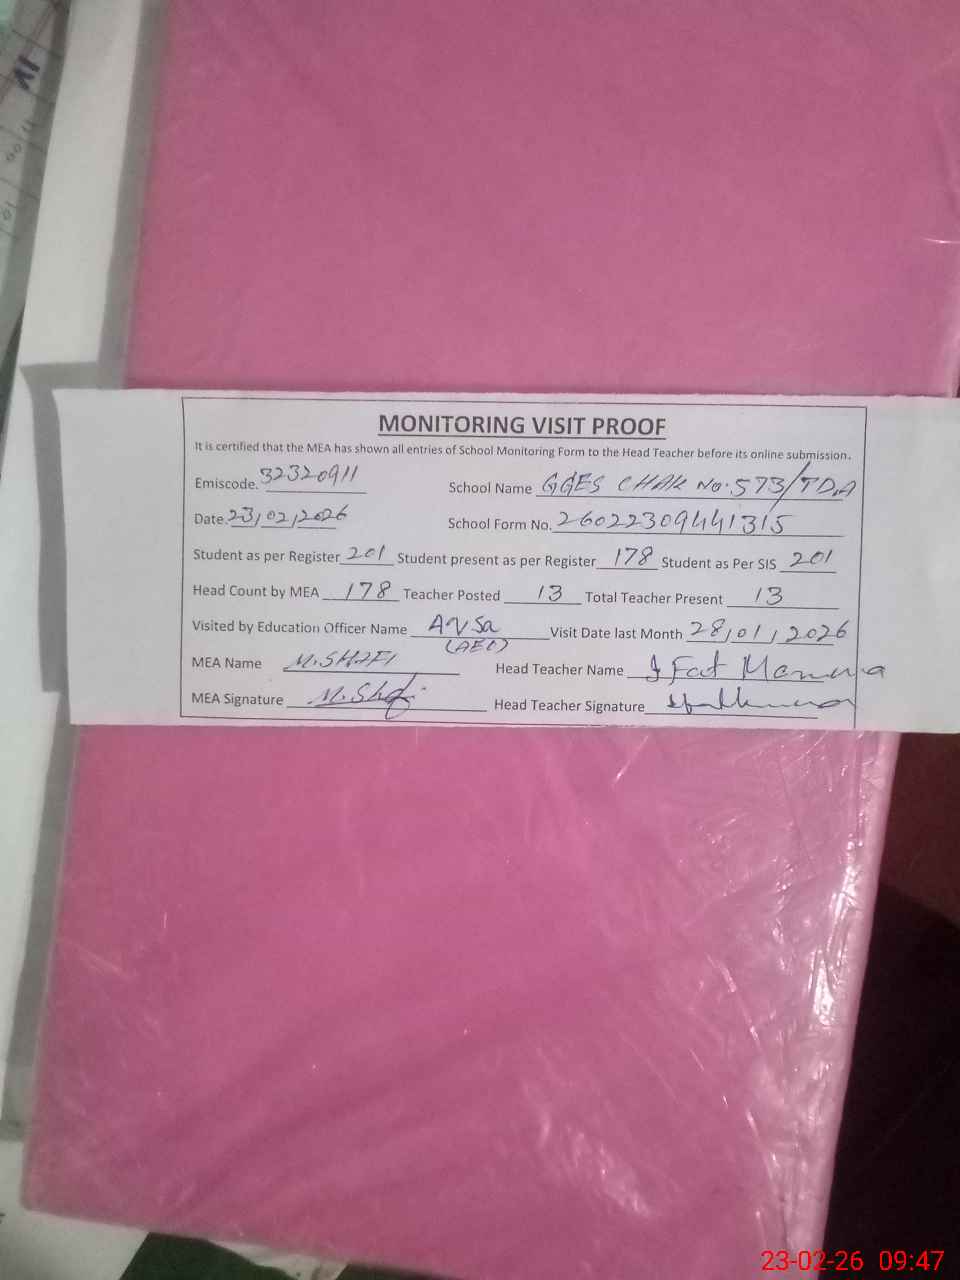 MONITORING VISIT PROOF
It is certified that the MEA has shown all entries of School Monitoring Form to the Head Teacher before its online submission.
Emiscode. 32320911 School Name GGES CHAK No. 573/TDA
Date. 23/02/2026 School Form No. 26022309441315
Student as per Register 201 Student present as per Register 178 Student as Per SIS 201
Head Count by MEA 178 Teacher Posted 13 Total Teacher Present 13
Visited by Education Officer Name Visit Date last Month 28/01/2026
(AEO)
MEA Name M.SHAFI Head Teacher Name
MEA Signature M.Shafi Head Teacher Signature
IV
23-02-26 09:47